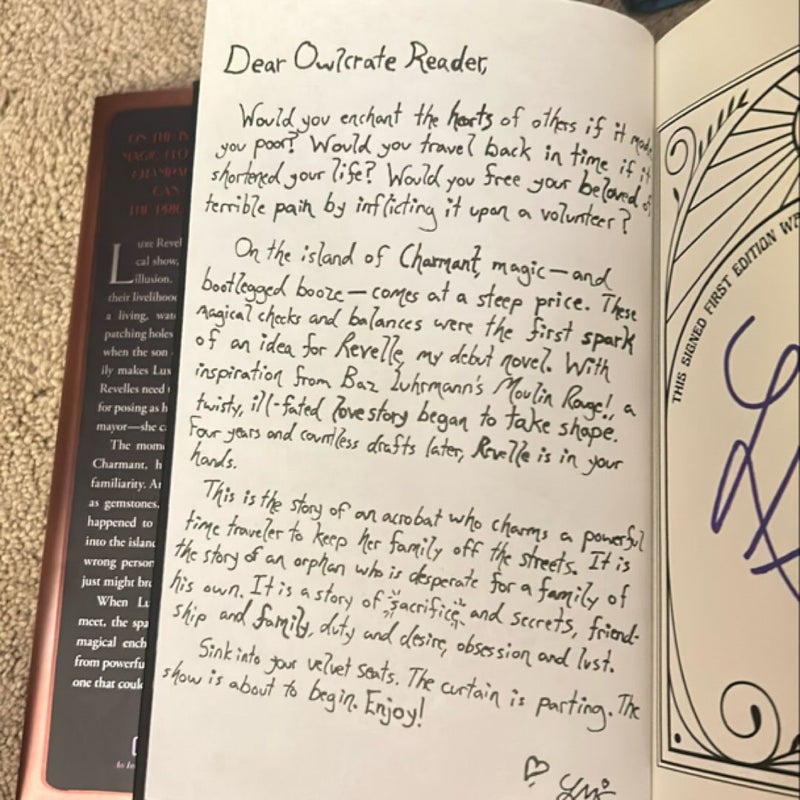 Dear Owlcrate Reader,
Would you enchant the hearts of others if it made
you poor? Would you travel back in time if it
shortened your life? Would you free your beloved of
terrible pain by inflicting it upon a volunteer?
On the island of Charmant, magic—and
bootlegged booze—comes at a steep price. These
magical checks and balances were the first spark
of an idea for Revelle, my debut novel. With
inspiration from Baz Luhrmann's Moulin Rouge!, a
twisty, ill-fated love story began to take shape.
Four years and countless drafts later, Revelle is in your
hands.
This is the story of an acrobat who charms a powerful
time traveler to keep her family off the streets. It is
the story of an orphan who is desperate for a family of
his own. It is a story of sacrifice, and secrets, friend-
ship and family, duty and desire, obsession and lust.
Sink into your velvet seats. The curtain is parting. The
show is about to begin. Enjoy!
ON THE
MAGIC
CHAMPA
CAN
THE PRIC
Luxe Revel
cal show,
illusion.
their livelihood
a living, wat
patching holes
when the son
ily makes Lux
Revelles need
for posing as h
mayor—she c
The mom
Charmant, h
familiarity. A
as gemstones,
happened to
into the island
wrong person
just might br
When Lu
meet, the spa
magical ench
from powerfu
one that coul
THIS SIGNED FIRST EDITION